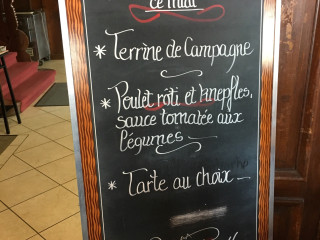 ce midi
* Terrine de Campagne
* Poulet rôti et Knepfles,
sauce tomatée aux
légumes
* Tarte au choix